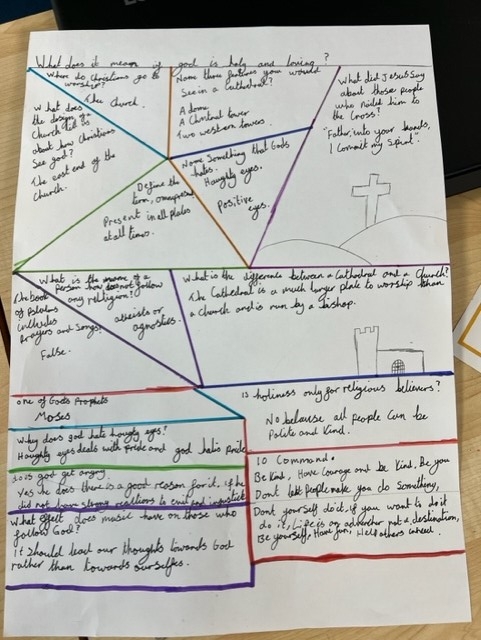 What does it mean if god is holy and loving?
Where do Christians go to
worship?
The Church.
What does
the design of a
Church tell us
about how Christians
See god?
The east end of the
Church.
Name three features you would
See in a Cathedral?
A dome
A Central tower
Two western towers.
What did Jesus Say
about those people
who nailed him to
the Cross?
"Father, into your hands,
I commit my Spirit."
Name Something that Gods
hates.
Haughty eyes.
Positive
eyes.
Define the
term, omnipresent
Present in all places
at all times.
What is the name of a
Person how does not follow
any religion?
atheists or
agnostics.
The book
of Psalms
includes
Prayers and Songs?
False.
What is the difference between a Cathedral and a Church?
The Cathedral is a much larger place to worship than
a church and is run by a bishop.
one of Gods Prophets
Moses
Why does god hate haughty eyes?
Haughty eyes deals with pride and god hates pride
Does god get angry
Yes he does there is a good reason for it, if he
did not have strong reactions to evil and injustice
What effect does music have on those who
follow God?
It Should lead our thoughts towards God
rather than towards ourselfes.
Is holiness only for religious believers?
No because all people Can be
Polite and Kind.
10 Command.
Be Kind, Have Courage and be Kind, Be you
Dont let People make you do Something,
Dont yourself do it, if you want to do it
do it, Life is an adventher not a destination,
Be yourself, Have fun, Help others in need.